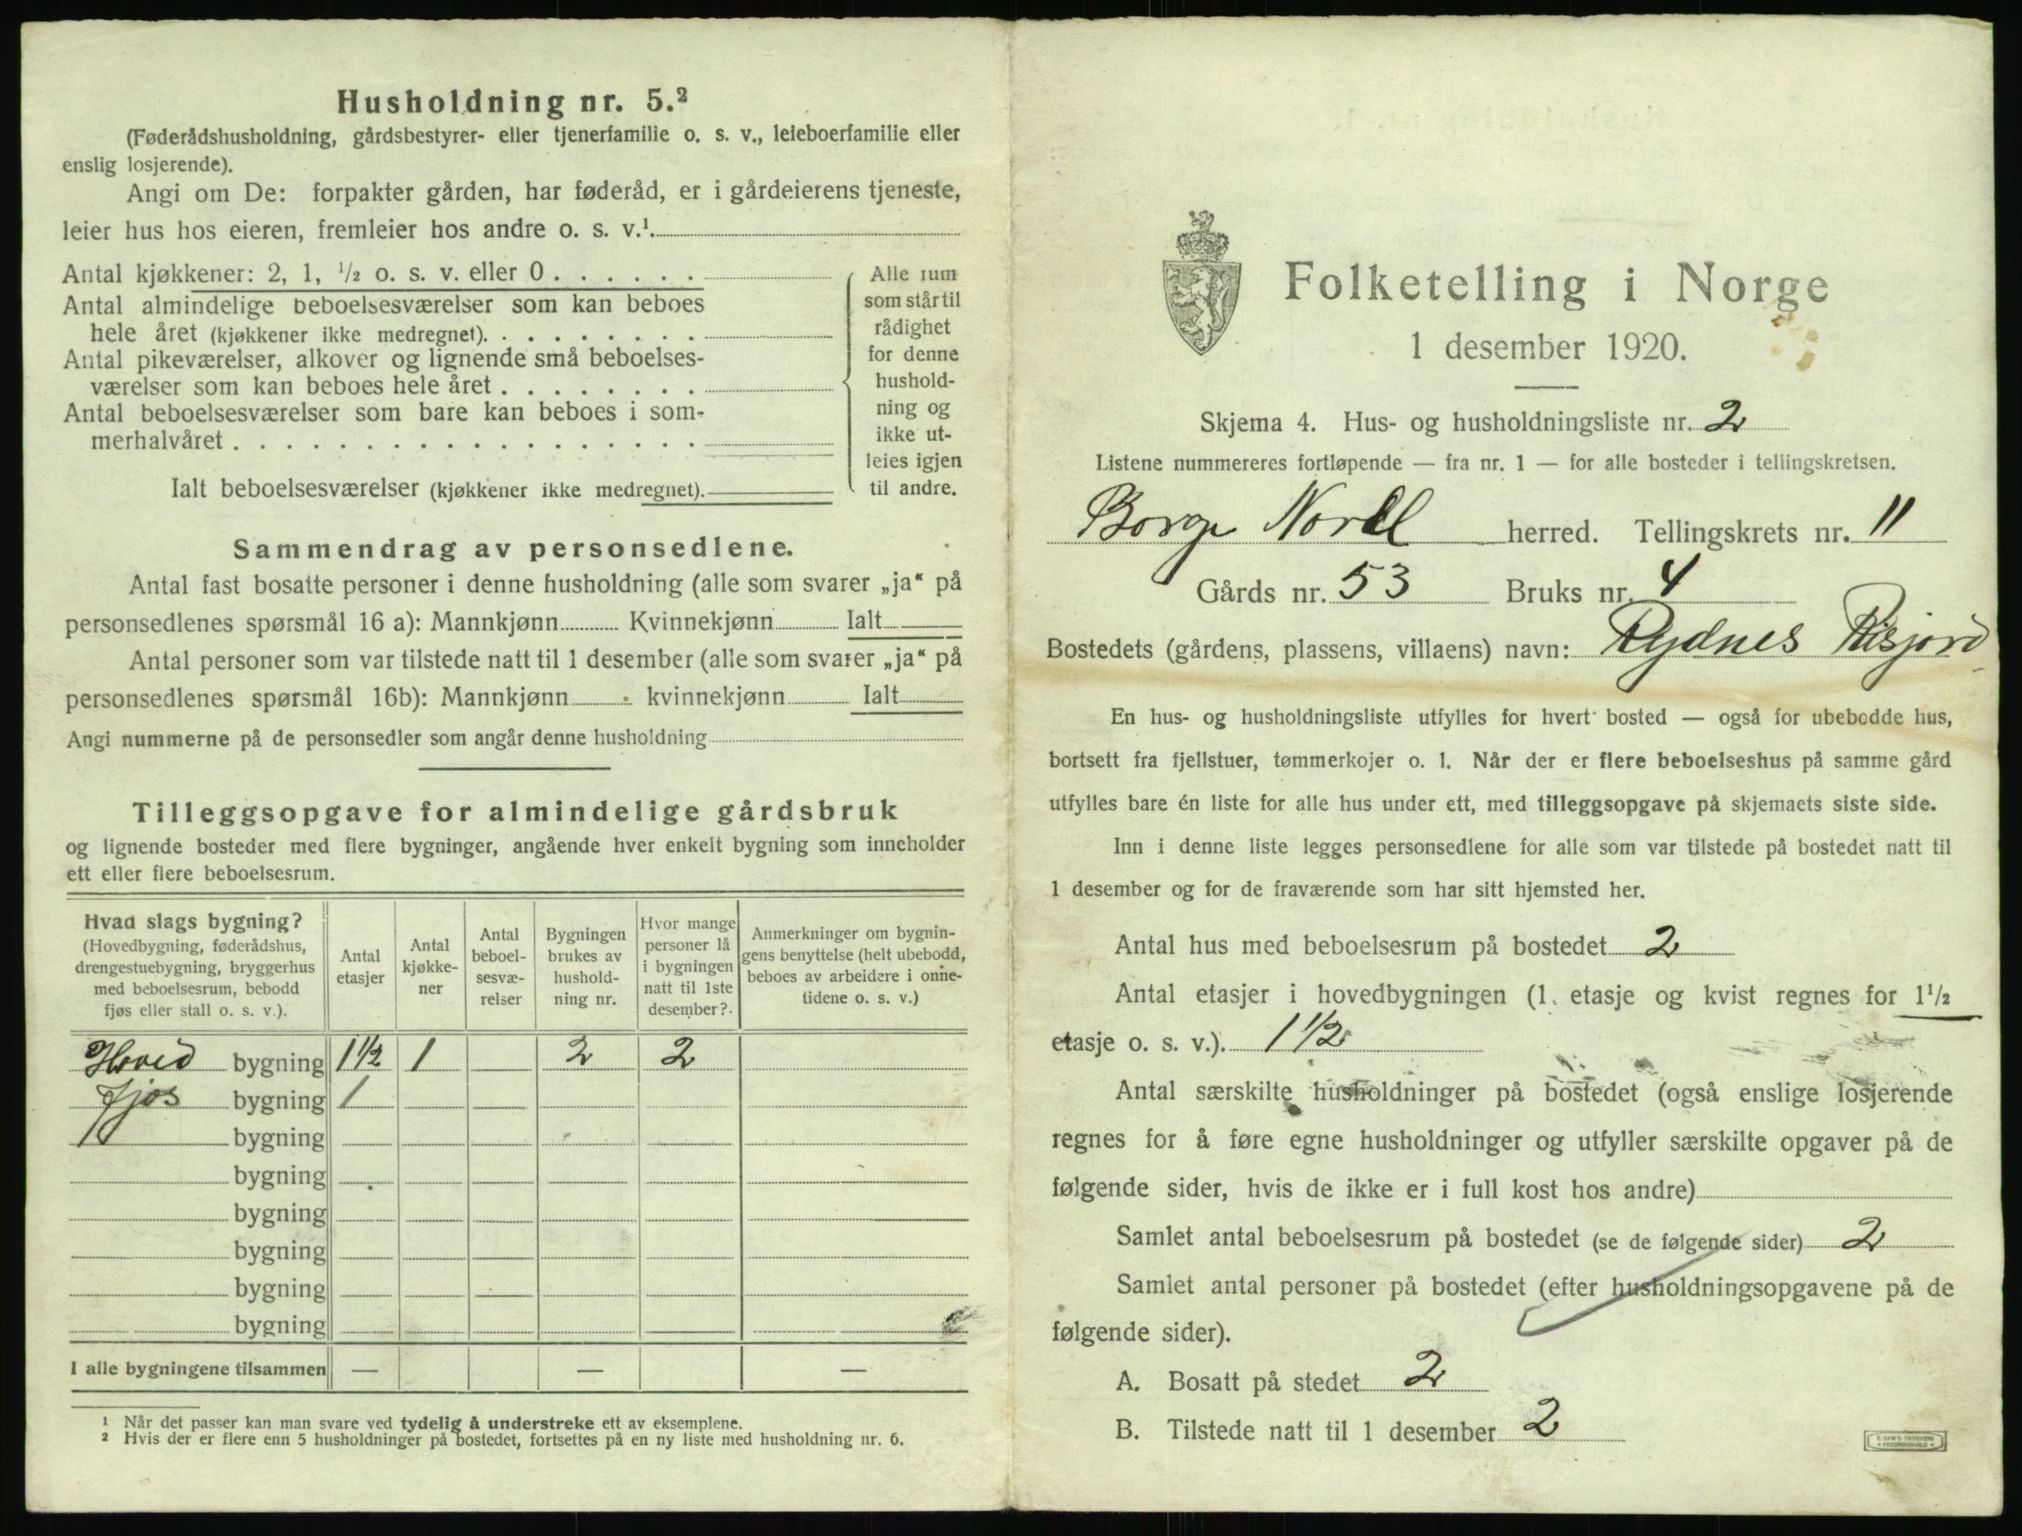 Husholdning nr. 5.²
(Føderådshusholdning, gårdsbestyrer- eller tjenerfamilie o. s. v., leieboerfamilie eller
enslig losjerende).
Angi om De: forpakter gården, har føderåd, er i gårdeierens tjeneste,
leier hus hos eieren, fremleier hos andre o. s. v.¹.
Antal kjøkkener: 2, 1, ½ o. s. v. eller 0 . . . . . .
Antal almindelige beboelsesværelser som kan beboes
hele året (kjøkkener ikke medregnet). . . . . . . . .
Antal pikeværelser, alkover og lignende små beboelses-
værelser som kan beboes hele året . . . . . . . .
Antal beboelsesværelser som bare kan beboes i som-
merhalvåret . . . . . . . . . . . . . . . . . .
Ialt beboelsesværelser (kjøkkener ikke medregnet).
Alle rum
som står til
rådighet
for denne
hushold-
ning og
ikke ut-
leies igjen
til andre.
Sammendrag av personsedlene.
Antal fast bosatte personer i denne husholdning (alle som svarer „ja“ på
personsedlenes spørsmål 16 a): Mannkjønn Kvinnekjønn Ialt
Antal personer som var tilstede natt til 1 desember (alle som svarer „ja“ på
personsedlenes spørsmål 16b): Mannkjønn kvinnekjønn Ialt
Angi nummerne på de personsedler som angår denne husholdning
Tilleggsopgave for almindelige gårdsbruk
og lignende bosteder med flere bygninger, angående hver enkelt bygning som inneholder
ett eller flere beboelsesrum.
Hvad slags bygning?
(Hovedbygning, føderådshus,
drengestuebygning, bryggerhus
med beboelsesrum, bebodd
fjøs eller stall o. s. v.).
Antal
etasjer
Antal
kjøkke-
ner
Antal
beboel-
sesvæ-
relser
Bygningen
brukes av
hushold-
ning nr.
Hvor mange
personer lå
i bygningen
natt til 1ste
desember?
Anmerkninger om bygnin-
gens benyttelse (helt ubebodd,
beboes av arbeidere i onne-
tidene o. s. v.)
Hoved bygning 1 ½ 1 2 2
Fjøs bygning 1
bygning
bygning
bygning
bygning
bygning
bygning
I alle bygningene tilsammen — — —
¹ Når det passer kan man svare ved tydelig å understreke ett av eksemplene.
² Hvis der er flere enn 5 husholdninger på bostedet, fortsettes på en ny liste med husholdning nr. 6.
Folketelling i Norge
1 desember 1920.
Skjema 4. Hus- og husholdningsliste nr. 2
Listene nummereres fortløpende — fra nr. 1 — for alle bosteder i tellingskretsen.
Borge Nordl herred. Tellingskrets nr. 11
Gårds nr. 53 Bruks nr. 4
Bostedets (gårdens, plassens, villaens) navn: Rydnes Risjord
En hus- og husholdningsliste utfylles for hvert bosted — også for ubebodde hus,
bortsett fra fjellstuer, tømmerkojer o. l. Når der er flere beboelseshus på samme gård
utfylles bare én liste for alle hus under ett, med tilleggsopgave på skjemaets siste side.
Inn i denne liste legges personsedlene for alle som var tilstede på bostedet natt til
1 desember og for de fraværende som har sitt hjemsted her.
Antal hus med beboelsesrum på bostedet 2
Antal etasjer i hovedbygningen (1. etasje og kvist regnes for 1½
etasje o. s. v.). 1 ½
Antal særskilte husholdninger på bostedet (også enslige losjerende
regnes for å føre egne husholdninger og utfyller særskilte opgaver på de
følgende sider, hvis de ikke er i full kost hos andre)
Samlet antal beboelsesrum på bostedet (se de følgende sider) 2
Samlet antal personer på bostedet (efter husholdningsopgavene på de
følgende sider).
A. Bosatt på stedet 2
B. Tilstede natt til 1 desember 2